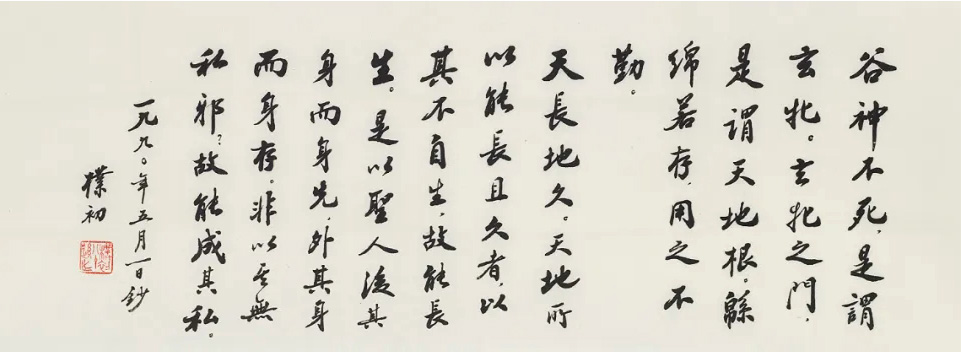 谷神不死，是謂
玄牝。玄牝之門，
是謂天地根。緜
綿若存，用之不
勤。
天長地久。天地所
以能長且久者，以
其不自生，故能長
生。是以聖人後其
身而身先，外其身
而身存。非以其無
私邪？故能成其私。
一九九〇年五月一日鈔
樸初